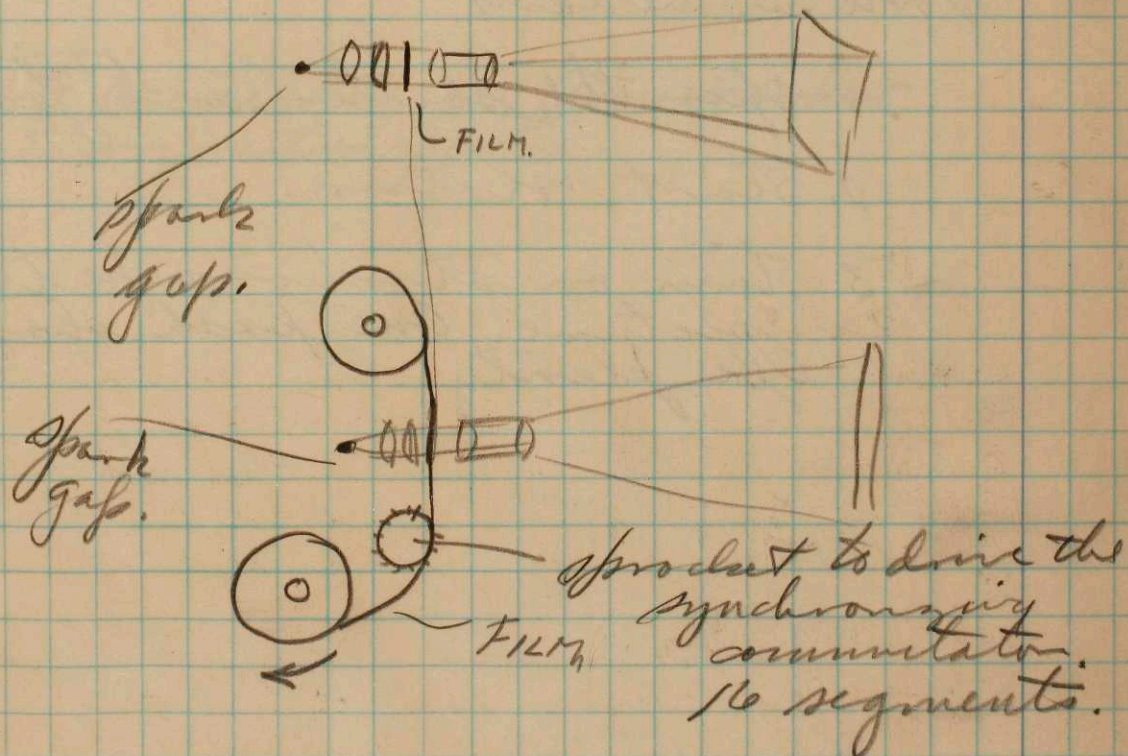 FILM.
spark
gap.
spark
gap.
sprocket to drive the
synchronizing
commutator.
16 segments.
FILM